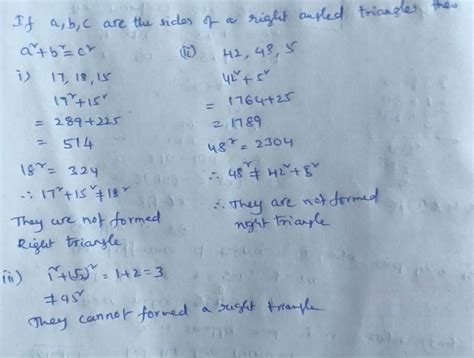 If a,b,c are the sides of a right angled triangle, then
a²+b²=c²
i) 17, 18, 15
17²+15²
= 289+225
= 514
18² = 324
∴ 17²+15²≠18²
They are not formed
Right triangle
(ii) 42, 48, 5
42²+5²
= 1764+25
= 1789
48² = 2304
∴ 48² ≠ 42²+5²
∴ They are not formed
right triangle
iii) 1²+(√2)² = 1+2=3
≠45²
They cannot formed a right triangle